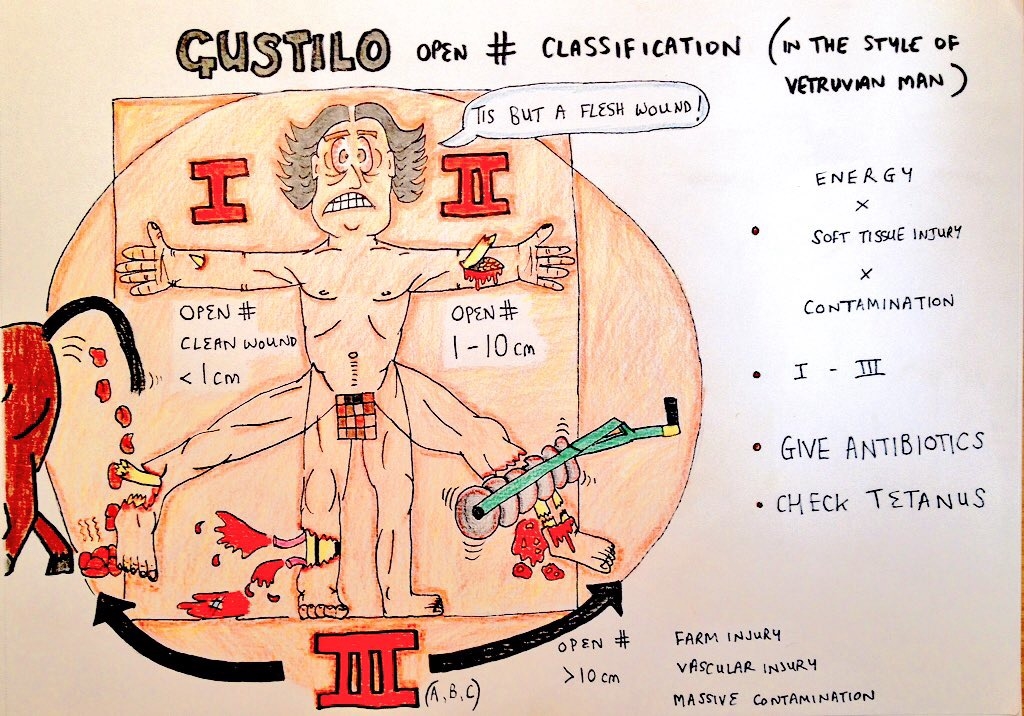 GUSTILO OPEN # CLASSIFICATION (IN THE STYLE OF
VETRUVIAN MAN)
TIS BUT A FLESH WOUND!
I
II
OPEN #
CLEAN WOUND
<1cm
OPEN #
1-10cm
III
(A,B,C)
OPEN #
>10cm
FARM INJURY
VASCULAR INJURY
MASSIVE CONTAMINATION
ENERGY
×
• SOFT TISSUE INJURY
×
CONTAMINATION
• I - III
• GIVE ANTIBIOTICS
• CHECK TETANUS